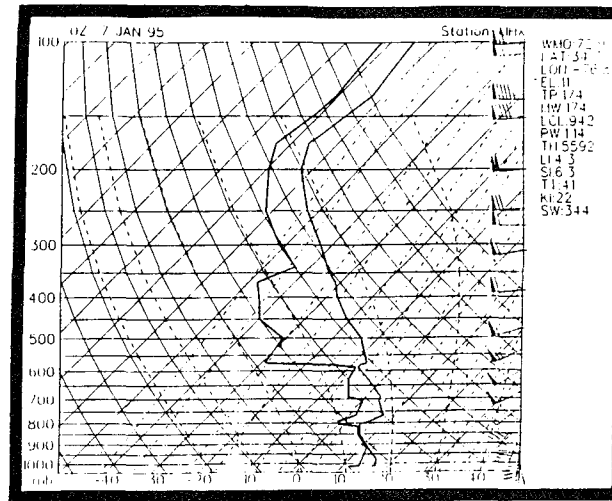 0Z 7 JAN 95 Station
LAT:34
EL:11
TP:174
MW:174
LCL:942
PW:114
TH:5592
LI:4.3
SI:6.3
TT:41
KI:22
SW:344
100
200
300
400
500
600
700
800
900
1000
mb -40 -30 -20 -10 0 10 20 30 40